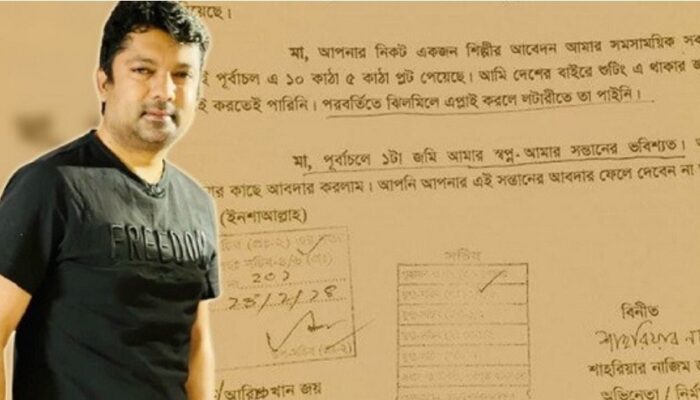 য়েছে।
মা, আপনার নিকট একজন শিল্পীর আবেদন আমার সমসাময়িক সক
ই পূর্বাচল এ ১০ কাঠা ৫ কাঠা প্লট পেয়েছে। আমি দেশের বাইরে শুটিং এ থাকার জ
ই করতেই পারিনি। পরবর্তিতে ঝিলমিলে এপ্লাই করলে লটারীতে তা পাইনি।
মা, পূর্বাচলে ১টা জমি আমার স্বপ্ন-আমার সন্তানের ভবিশ্যত।
ার কাছে আবদার করলাম। আপনি আপনার এই সন্তানের আবদার ফেলে দেবেন না
(ইনশাআল্লাহ)
FREEDOM
সচিব
২০১
বিনীত
শাহরিয়ার না
শাহরিয়ার নাজিম জ
অভিনেতা / নির্ম
খান জয়